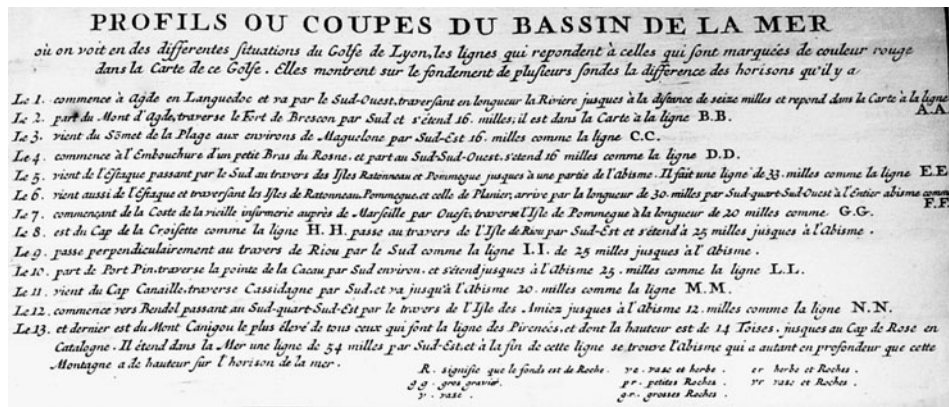 PROFILS OU COUPES DU BASSIN DE LA MER
où on voit en des differentes situations du Golfe de Lyon, les lignes qui repondent à celles qui sont marquées de couleur rouge
dans la Carte de ce Golfe. Elles montrent sur le fondement de plusieurs sondes la difference des horisons qu'il y a
Le 1. commence à Agde en Languedoc et va par le Sud-Ouest, traversant en longueur la Riviere jusques à la distance de seize milles et repond dans la Carte à la ligne A.A.
Le 2. part du Mont d'Agde, traverse le Fort de Brescon par Sud et s'étend 16. milles; il est dans la Carte à la ligne B.B.
Le 3. vient du Sõmet de la Plage aux environs de Maguelone par Sud-Est 16. milles comme la ligne C.C.
Le 4. commence à l'Embouchure d'un petit Bras du Rosne, et part au Sud-Sud-Ouest, s'etend 16 milles comme la ligne D.D.
Le 5. vient de l'Estaque passant par le Sud au travers des Isles Ratonneau et Pommegue jusques à une partie de l'Abisme. Il fait une ligne de 33. milles comme la ligne E.E
Le 6. vient aussi de l'Estaque et traversant les Isles de Ratonneau, Pommegue, et celle de Planier, arrive par la longueur de 30. milles par Sud-quart-Sud-Ouest à l'Entier abisme comme F.F.
Le 7. commençant de la Coste de la vieille infirmerie auprès de Marseille par Ouest, traverse l'Isle de Pommegue à la longueur de 20 milles comme G.G.
Le 8. est du Cap de la Croisette comme la ligne H.H. passe au travers de l'Isle de Riou par Sud-Est et s'étend à 25 milles jusques à l'Abisme.
Le 9. passe perpendiculairement au travers de Riou par le Sud comme la ligne I.I. de 25 milles jusques à l'Abisme.
Le 10. part de Port Pin, traverse la pointe de la Cacau par Sud environ, et s'étend jusques à l'Abisme 25. milles comme la ligne L.L.
Le 11. vient du Cap Canaille, traverse Cassidagne par Sud, et va jusqu'à l'Abisme 20. milles comme la ligne M.M.
Le 12. commence vers Bendol passant au Sud-quart-Sud-Est par le travers de l'Isle des Amiez jusques à l'Abisme 12. milles comme la ligne N.N.
Le 13. et dernier est du Mont Canigou le plus élevé de tous ceux qui font la ligne des Pirenées, et dont la hauteur est de 14 Toises. jusques au Cap de Rose en
Catalogne. Il étend dans la Mer une ligne de 54 milles par Sud-Est, et à la fin de cette ligne se trouve l'Abisme qui a autant en profondeur que cette
Montagne a de hauteur sur l'horison de la mer.
R. signifie que le fonds est de Roche. ve. vase et herbe. er herbe et Roches.
gg. gros gravier. pr. petites Roches. vr vase et Roches.
v. vase. gr. grosses Roches.